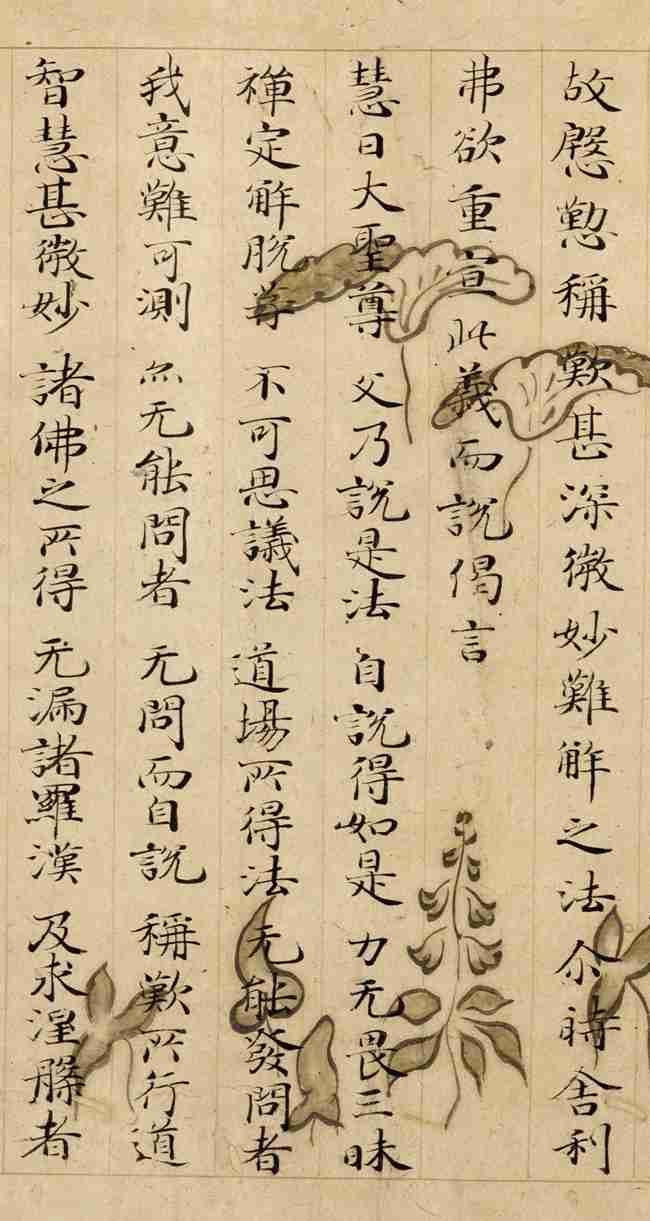 故慇懃稱歎甚深微妙難解之法尒時舍利
弗欲重宣此義而說偈言
慧日大聖尊 父乃說是法 自說得如是 力无畏三昧
禪定解脫等 不可思議法 道場所得法 无能發問者
我意難可測 亦无能問者 无問而自說 稱歎所行道
智慧甚微妙 諸佛之所得 无漏諸羅漢 及求涅槃者